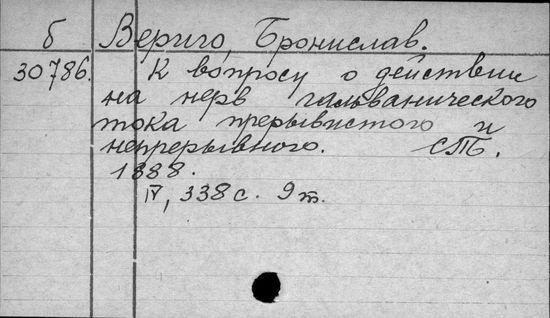 б Вериго, Бронислав.
30786. К вопросу о действии
на нерв гальванического
тока прерывистого и
непрерывного. СПБ.
1888.
IV, 338 с. 9 т.